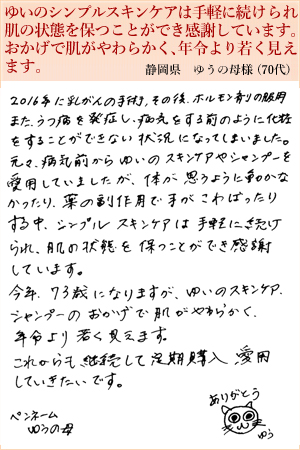 ゆいのシンプルスキンケアは手軽に続けられ
肌の状態を保つことができ感謝しています。
おかげで肌がやわらかく、年令より若く見え
ます。
静岡県　ゆうの母様（70代）
2016年に乳がんの手術、その後、ホルモン剤の服用
また、うつ病を発症し、病気をする前のように化粧
をすることができない状況になってしまいました。
元々、病気前からゆいのスキンケアやシャンプーを
愛用していましたが、体が思うように動かな
かったり、薬の副作用で手がこわばったり
する中、シンプルスキンケアは手軽に続け
られ、肌の状態を保つことができ感謝
しています。
今年、73歳になりますが、ゆいのスキンケア、
シャンプーのおかげで肌がやわらかく、
年令より若く見えます。
これからも継続して定期購入愛用
していきたいです。
ありがとう
ペンネーム
ゆうの母
ゆう